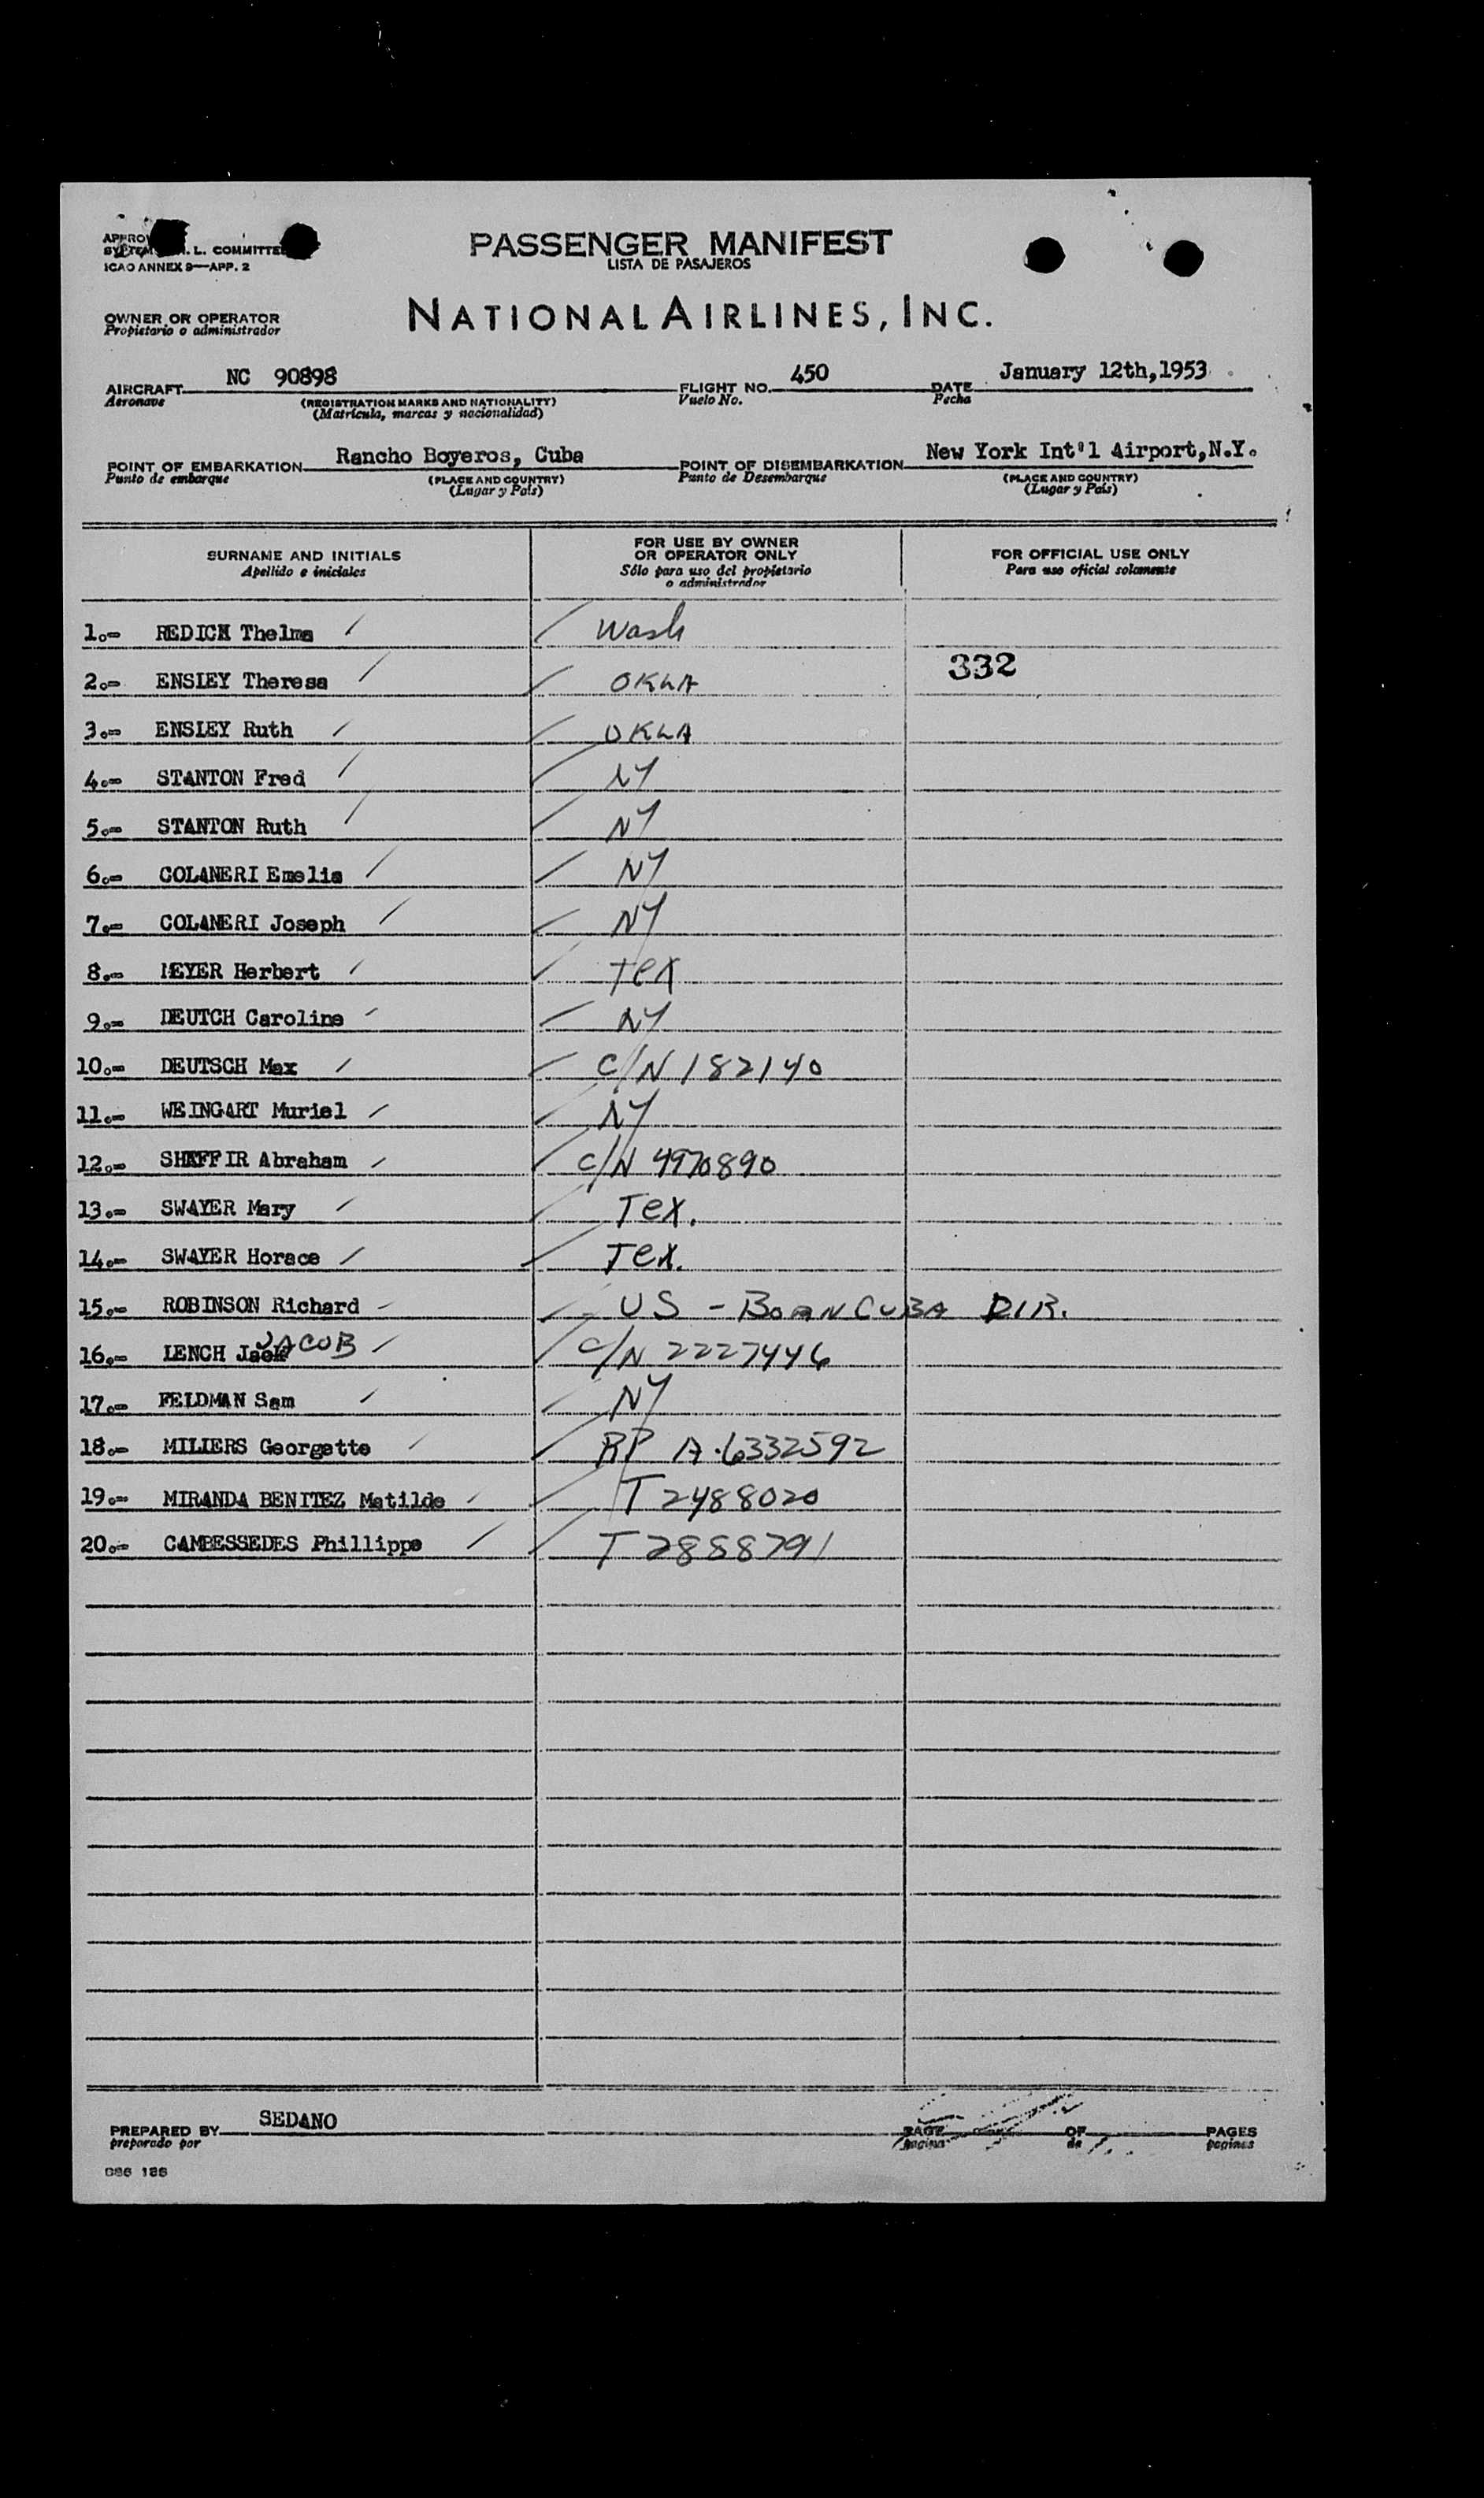 PASSENGER MANIFEST
LISTA DE PASAJEROS
L. COMMITTEE
ICAO ANNEX 9—APP. 2
OWNER OR OPERATOR
Propietario o administrador
NATIONAL AIRLINES, INC.
AIRCRAFT NC 90898 FLIGHT NO. 450 DATE January 12th,1953
Aeronave (REGISTRATION MARKS AND NATIONALITY) Vuelo No. Fecha
(Matrícula, marcas y nacionalidad)
POINT OF EMBARKATION Rancho Boyeros, Cuba POINT OF DISEMBARKATION New York Int'l Airport,N.Y.
Punto de embarque (PLACE AND COUNTRY) Punto de Desembarque (PLACE AND COUNTRY)
(Lugar y País) (Lugar y País)
SURNAME AND INITIALS FOR USE BY OWNER OR OPERATOR ONLY FOR OFFICIAL USE ONLY
Apellido e iniciales Sólo para uso del propietario o administrador Para uso oficial solamente
1.- REDICK Thelma / / Wash
332
2.- ENSLEY Theresa / / OKLA
3.- ENSLEY Ruth / / OKLA
4.- STANTON Fred / / NY
5.- STANTON Ruth / / NY
6.- COLANERI Emelia / / NY
7.- COLANERI Joseph / / NY
8.- MEYER Herbert / / Tex
9.- DEUTCH Caroline / / NY
10.- DEUTSCH Max / / C/N 182140
11.- WEINGART Muriel / / NY
12.- SHAFFIR Abraham / / C/N 4970890
13.- SWAYER Mary / / Tex.
14.- SWAYER Horace / / Tex.
15.- ROBINSON Richard / / US - BORN CUBA DIR.
16.- LENCH Jack JACOB / / C/N 2227446
17.- FELDMAN Sam / / NY
18.- MILIERS Georgette / / RP A-6332592
19.- MIRANDA BENITEZ Matilde / / T 2488020
20.- CAMBESSEDES Phillippe / / T 2888791
PREPARED BY SEDANO PAGE OF PAGES
preparado por pagina de paginas